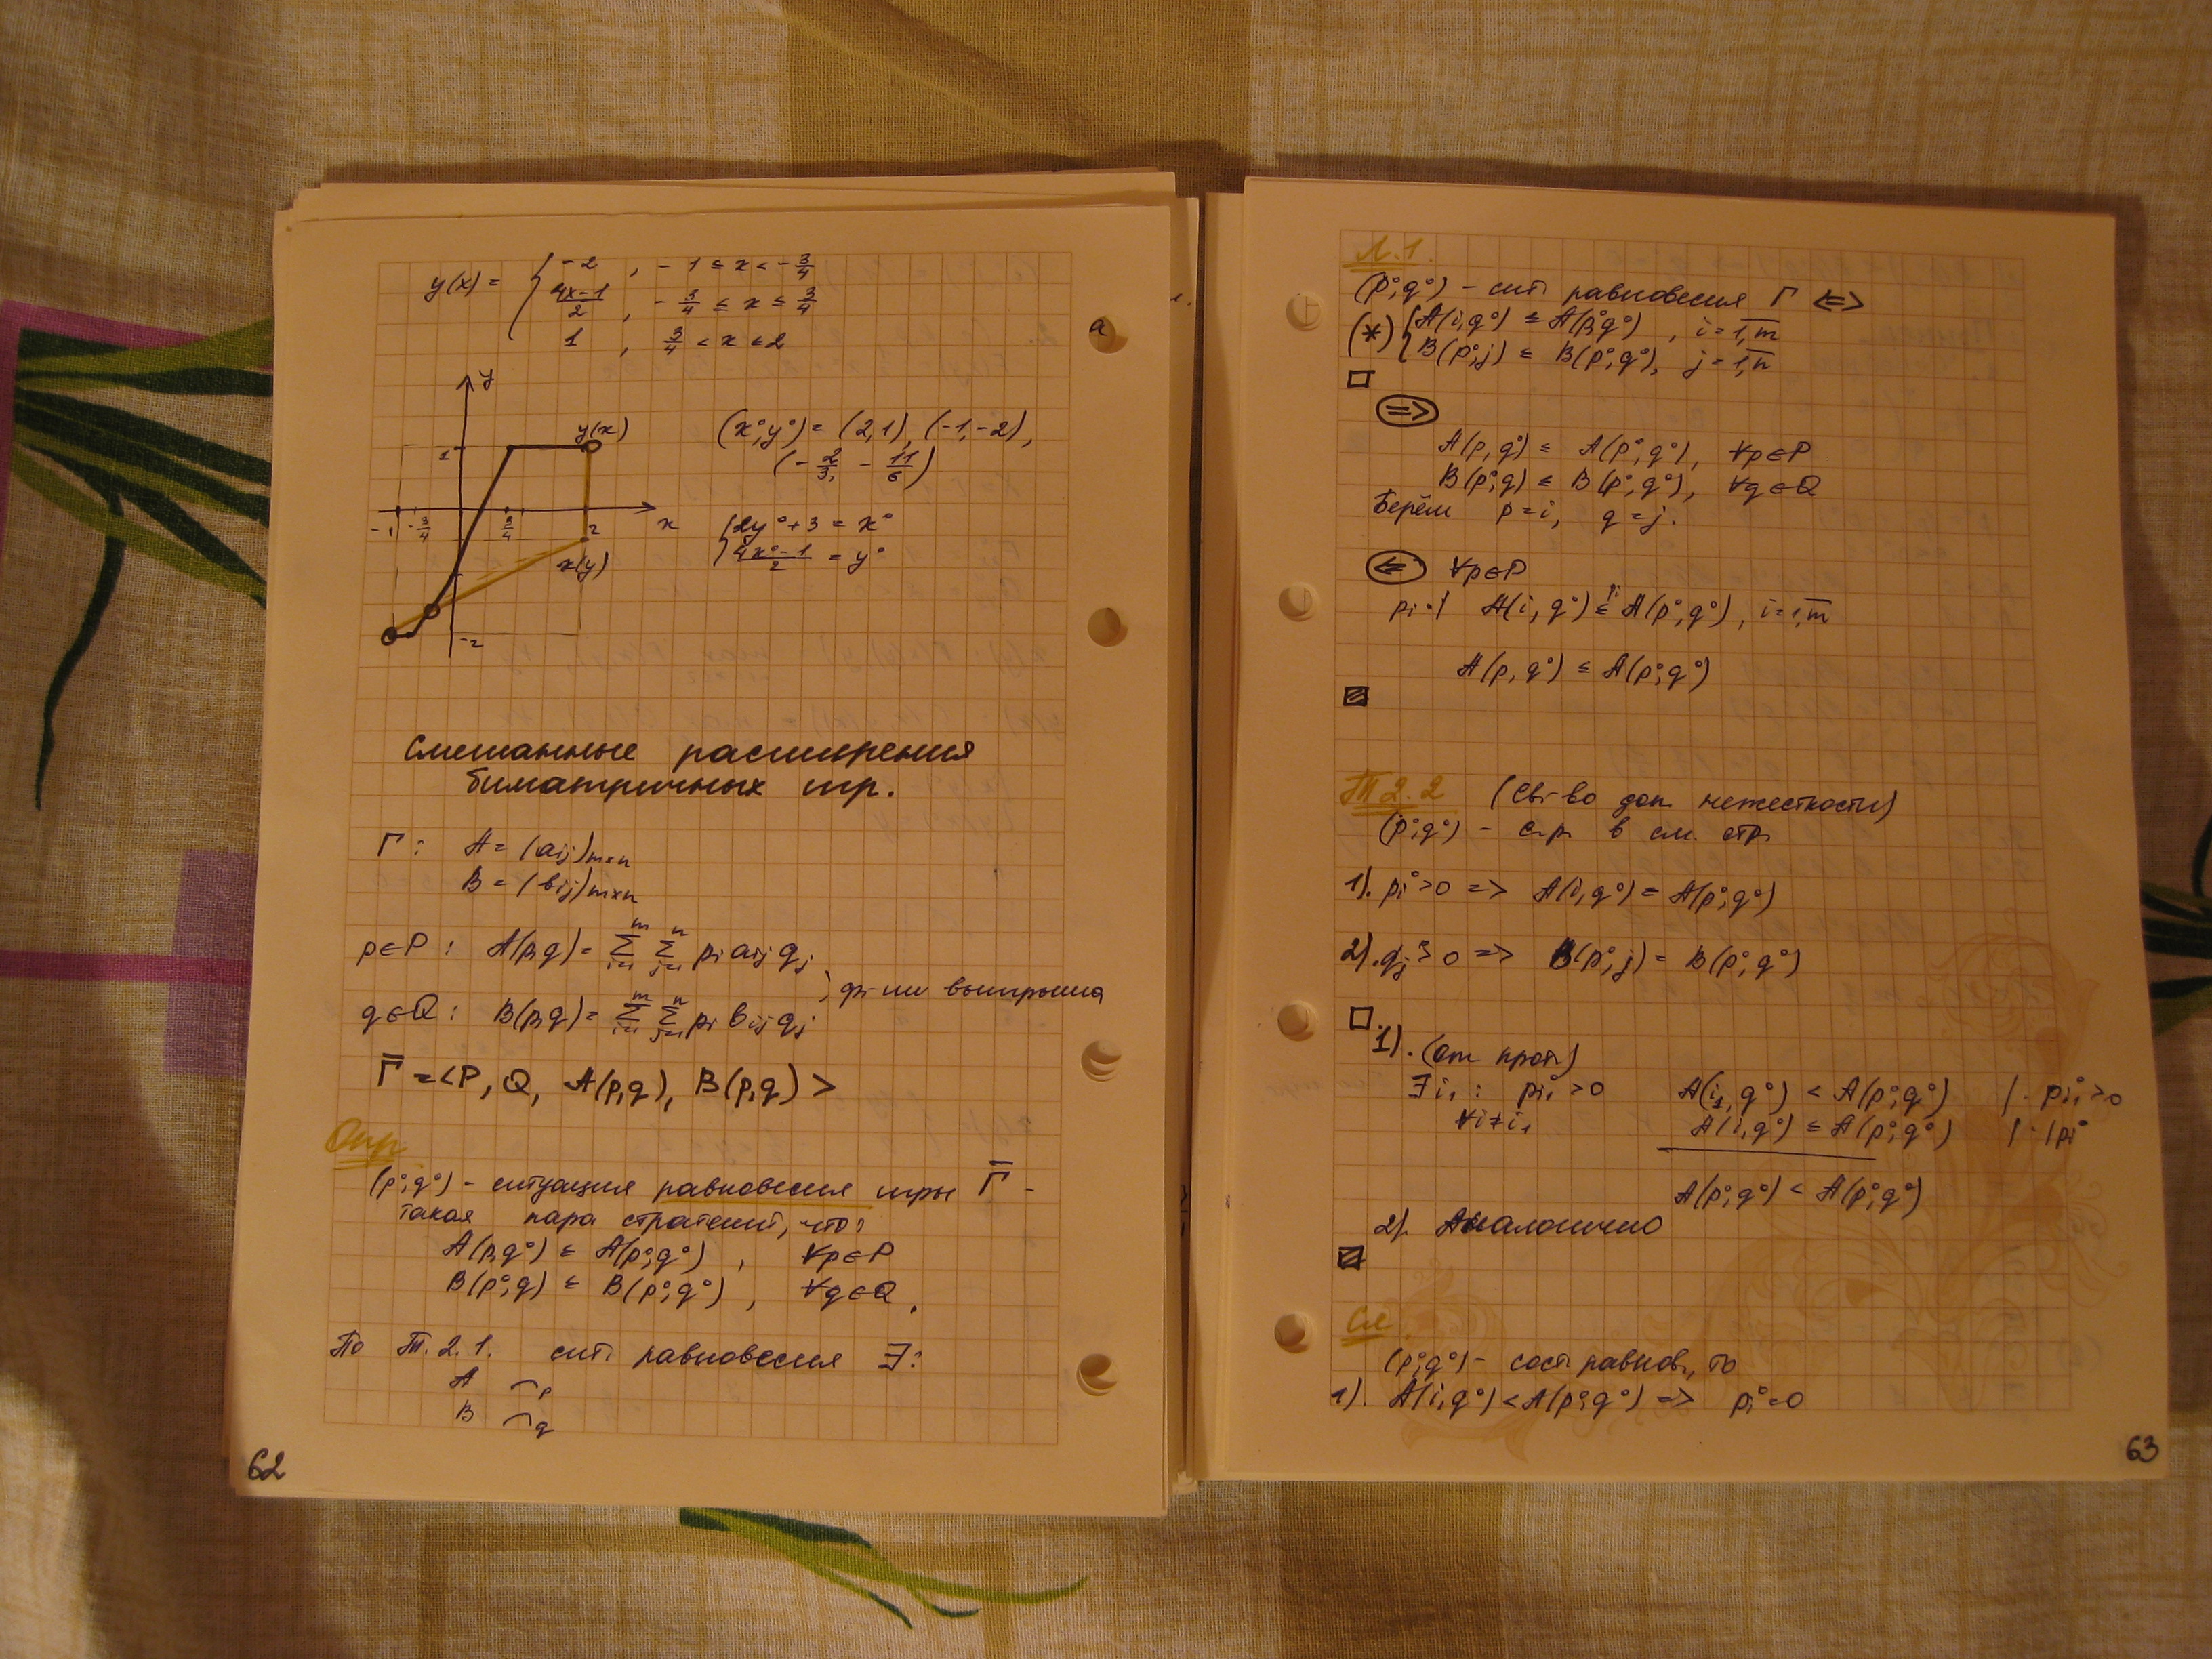 y(x) = { -2 , -1 ≤ x < -3/4
(4x-1)/2 , -3/4 ≤ x ≤ 3/4
1 , 3/4 < x ≤ 2
y
y(x)
1
-1 -3/4 3/4 2 x
x(y)
-2
(x°, y°) = (2,1), (-1,-2),
(-2/3, -11/6)
{ 2y° + 3 = x°
(4x°-1)/2 = y°
Смешанные расширения
биматричных игр.
Г: A = (aij)m×n
B = (bij)m×n
p∈P : A(p,q) = Σ(i=1..m) Σ(j=1..n) pi aij qj
q∈Q : B(p,q) = Σ(i=1..m) Σ(j=1..n) pi bij qj
} ф-ии выигрыша
Г̅ = <P, Q, A(p,q), B(p,q)>
Опр
(p°,q°) - ситуация равновесия игры Г̅ -
такая пара стратегий, что:
A(p,q°) ≤ A(p°,q°) , ∀p∈P
B(p°,q) ≤ B(p°,q°) , ∀q∈Q.
По Т.2.1. сит. равновесия ∃:
A ⌒p
B ⌒q
62
a
Л.1.
(p°,q°) - сит. равновесия Г̅ <=>
(*) { A(i,q°) ≤ A(p°,q°) , i = 1,m
B(p°,j) ≤ B(p°,q°), j = 1,n
□
=>
A(p,q°) ≤ A(p°,q°), ∀p∈P
B(p°,q) ≤ B(p°,q°), ∀q∈Q
Берём p = i, q = j.
<= ∀p∈P
pi · | A(i,q°) ≤ A(p°,q°), i = 1,m
A(p,q°) ≤ A(p°,q°)
Т 2.2 (Св-во доп. нежесткости)
(p°,q°) - с.р. в см. стр.
1). pi° > 0 => A(i,q°) = A(p°,q°)
2). qj° > 0 => B(p°,j) = B(p°,q°)
□.
1). (от прот.)
∃ i1 : pi1° > 0 A(i1,q°) < A(p°,q°) | · pi1° > 0
∀i≠i1 A(i,q°) ≤ A(p°,q°) | · pi°
A(p°,q°) < A(p°,q°)
2). Аналогично
Сл.
(p°,q°) - сост. равнов., то
1). A(i,q°) < A(p°,q°) => pi° = 0
63